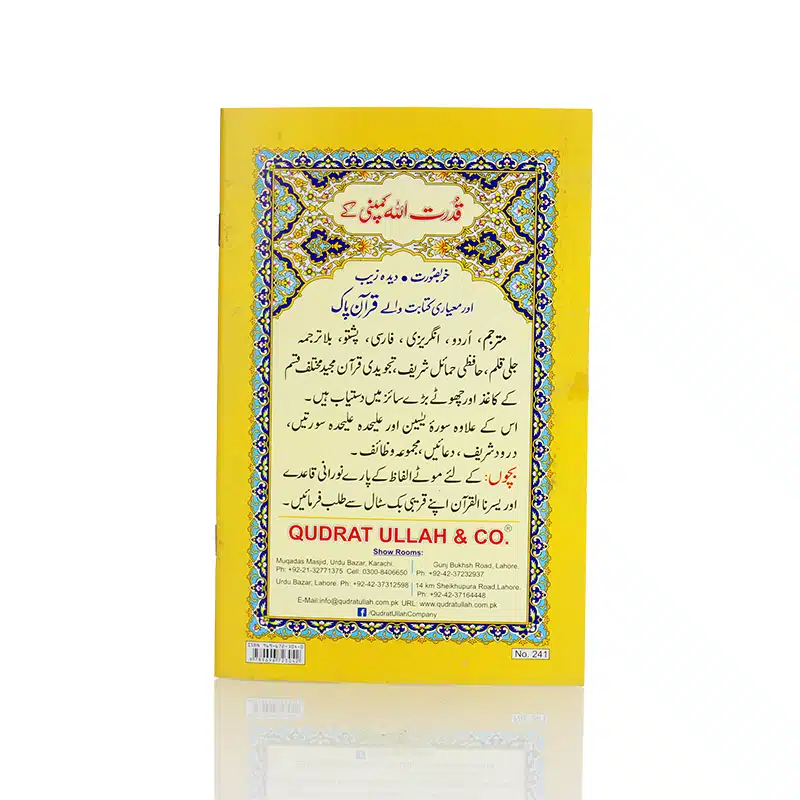 قُدرت اللہ کمپنی کے
خوبصورت • دیدہ زیب
اور معیاری کتابت والے قرآن پاک
مترجم، اُردو، انگریزی، فارسی، پشتو، بلا ترجمہ
جلی قلم، حافظی حمائل شریف، تجویدی قرآن مجید مختلف قسم
کے کاغذ اور چھوٹے بڑے سائز میں دستیاب ہیں۔
اس کے علاوہ سورۂ یٰسین اور علیحدہ علیحدہ سورتیں،
درود شریف، دعائیں، مجموعہ وظائف۔
بچوں: کے لئے موٹے الفاظ کے پارے نورانی قاعدے
اور یسرنا القرآن اپنے قریبی بک سٹال سے طلب فرمائیں۔
QUDRAT ULLAH & CO.®
Show Rooms:
Muqadas Masjid, Urdu Bazar, Karachi.
Ph: +92-21-32771375 Cell: 0300-8406650
Gunj Bukhsh Road, Lahore.
Ph: +92-42-37232937
Urdu Bazar, Lahore. Ph: +92-42-37312598
14 km Sheikhupura Road, Lahore.
Ph: +92-42-37164448
E-Mail:info@qudratullah.com.pk URL: www.qudratullah.com.pk
/QudratUllahCompany
No. 241